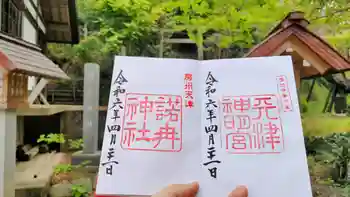 房州天津
令和六年四月二十一日
諾冉神社
令和六年四月二十一日
天津神明宮